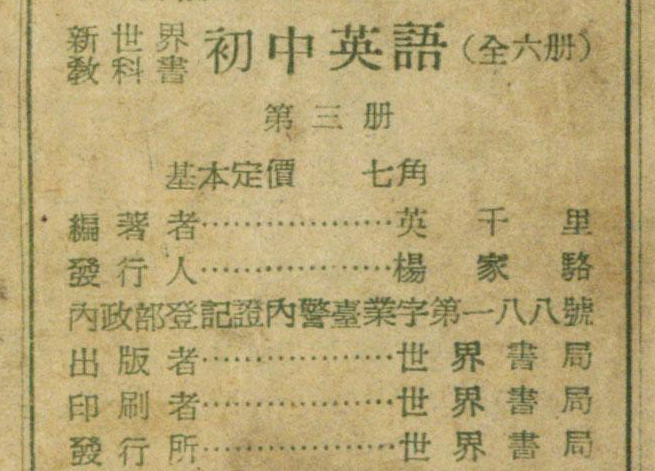 新世界教科書 初中英語（全六册）
第三册
基本定價 七角
編著者………………英千里
發行人………………楊家駱
內政部登記證內警臺業字第一八八號
出版者………………世界書局
印刷者………………世界書局
發行所………………世界書局